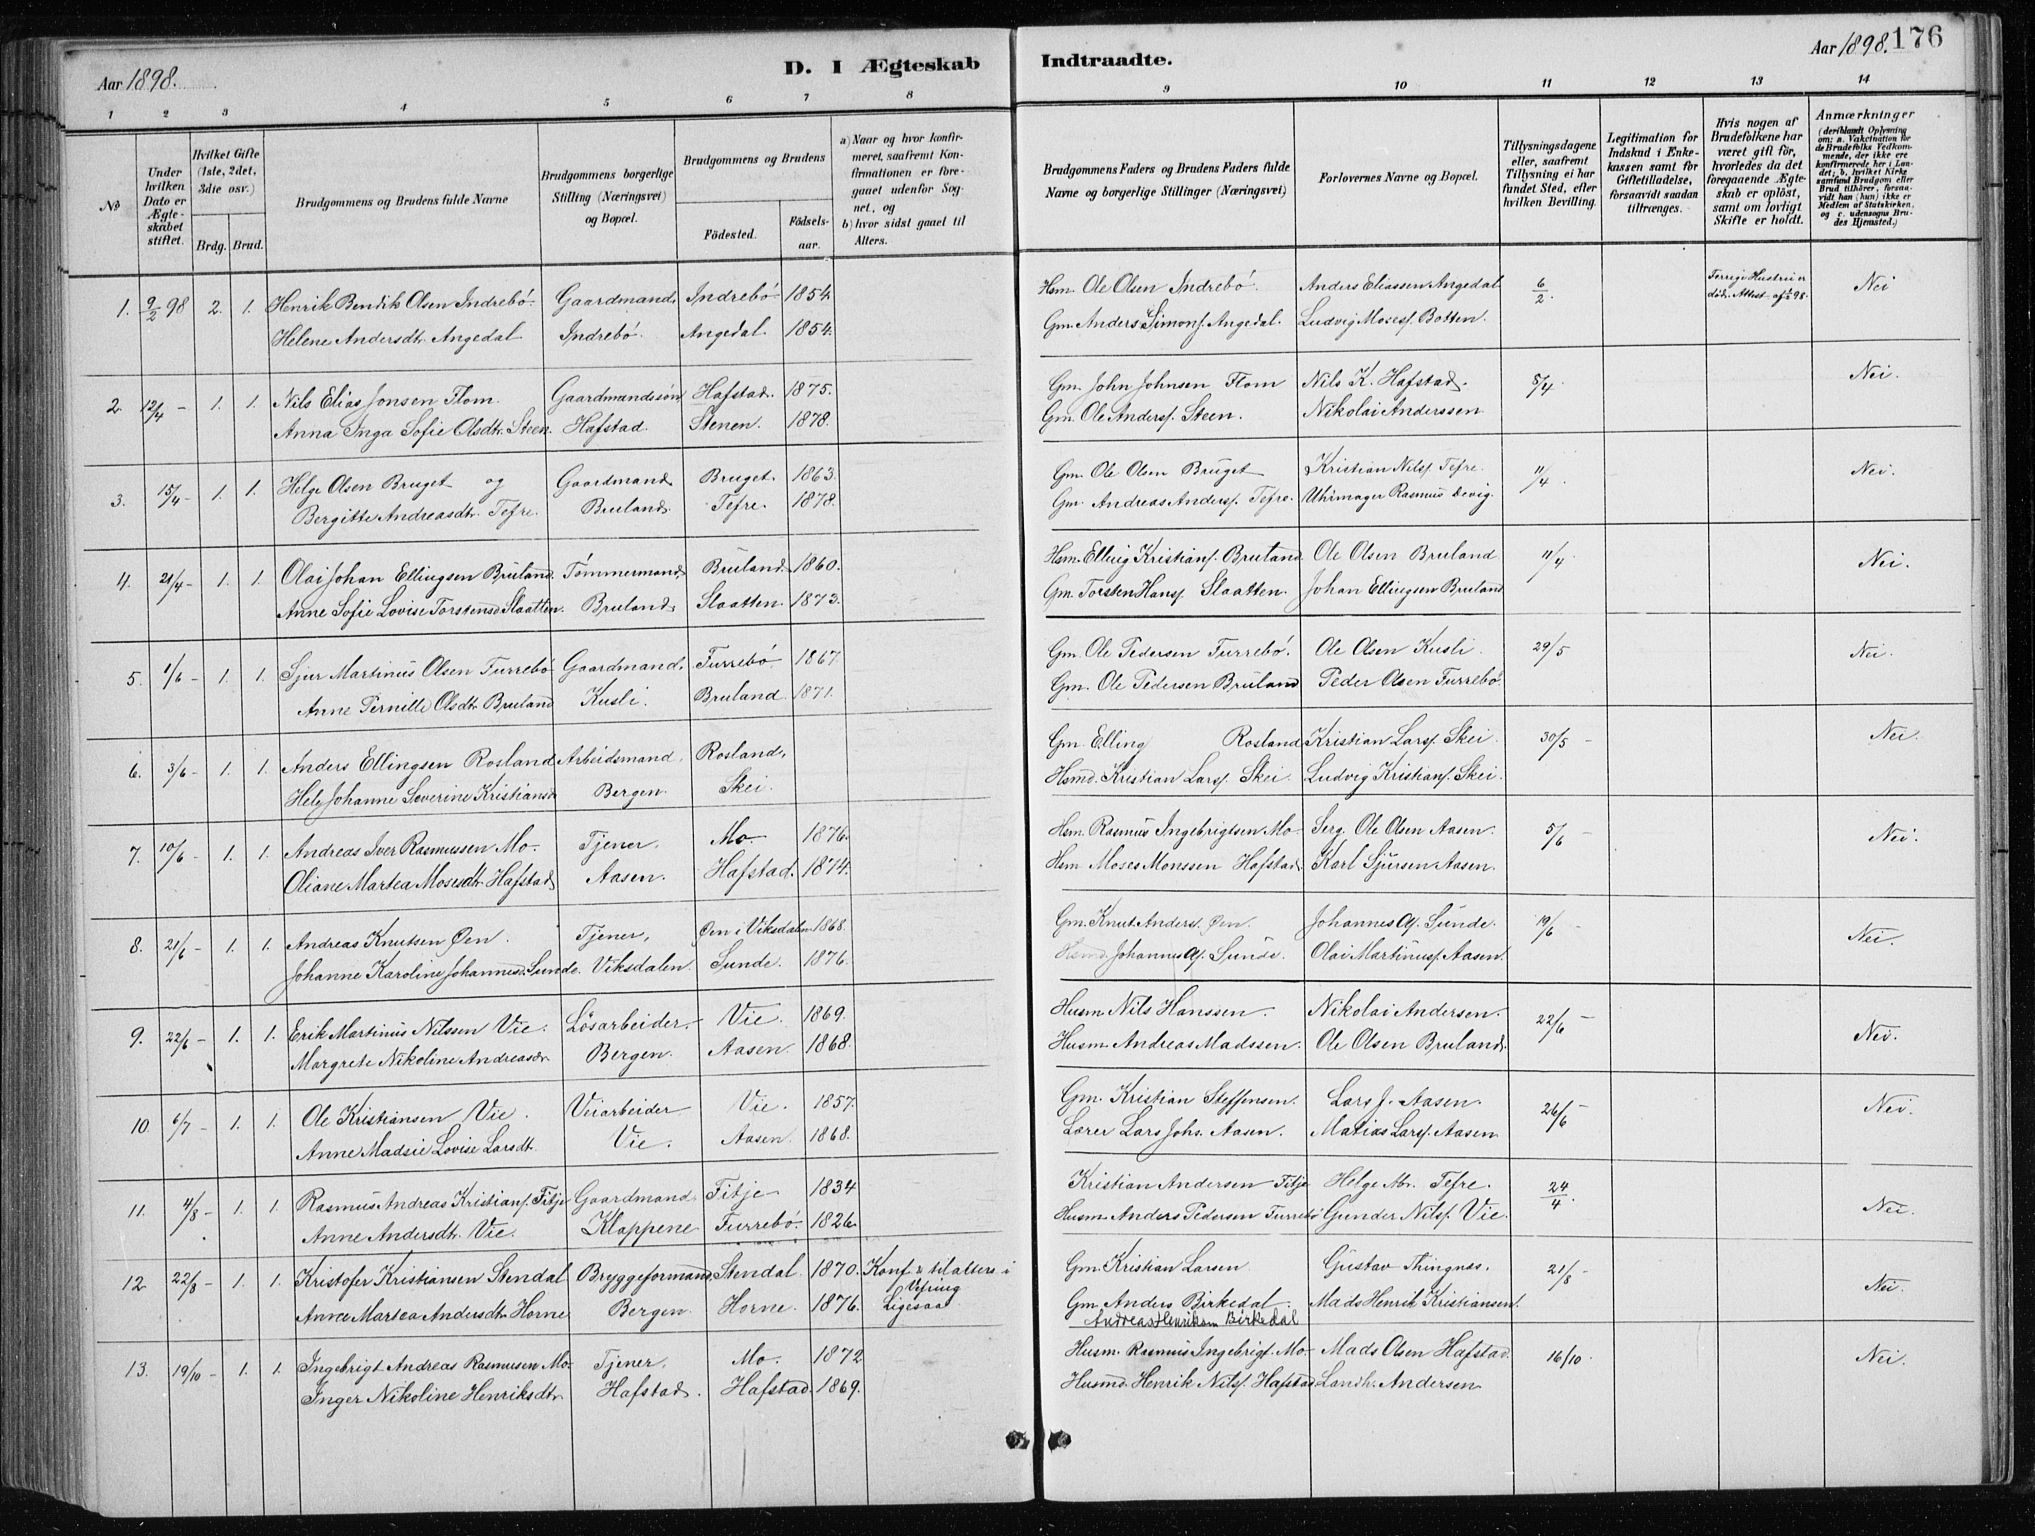 Aar 1898.
D. I Ægteskab
Indtraadte.
Aar 1898.
176
1
2
3
4
5
6
7
8
9
10
11
12
13
14
No
Under hvilken Dato er Ægteskabet stiftet.
Hvilket Gifte (1ste, 2det, 3die osv.)
Brdg.
Brud.
Brudgommens og Brudens fulde Navne
Brudgommens borgerlige Stilling (Næringsvei) og Bopæl.
Brudgommens og Brudens
Födested.
Födselsaar.
a) Naar og hvor konfirmeret, saafremt Konfirmationen er foregaaet udenfor Sognet, og
b) hvor sidst gaaet til Alters.
Brudgommens Faders og Brudens Faders fulde Navne og borgerlige Stillinger (Næringsvei)
Forlovernes Navne og Bopæl.
Tillysningsdagene eller, saafremt Tillysning ei har fundet Sted, efter hvilken Bevilling.
Legitimation for Indskud i Enkekassen samt for Giftetilladelse, forsaavidt saadan tiltrænges.
Hvis nogen af Brudefolkene har været gift för, hvorledes da det foregaaende Ægteskab er oplöst, samt om lovligt Skifte er holdt.
Anmærkninger
(deriblandt Oplysning om: a. Vakcination for de Brudefolks Vedkommende, der ikke ere konfirmerede her i Landet; b. hvilket Kirkesamfund Brudgom eller Brud tilhörer, forsaavidt han (hun) ikke er Medlem af Statskirken, og c. udensogns Brudes Hjemsted.)
1. 9/2 98 2. 1. Henrik Bendik Olsen Indrebö. Gaardmand, Indrebö. 1854. Hsm. Ole Olsen Indrebö. Anders Eliassen Angedal 6/2. Forrige Hustru er Nei
Helene Andersdtr. Angedal Indrebö. Angedal. 1854. Gm. Anders Simons. Angedal. Ludvig Moses. Botten. död. Attest af
2. 12/4 – 1. 1. Nils Elias Jonsen Flom. Gaardmandssön Hafstad. 1875. Gm. John Johnsen Flom Nils K. Hafstad. 5/4 Nei.
Anna Inga Sofie Olsdtr. Steen. Hafstad. Stenen. 1878. Gm. Ole Anders. Steen. Nikolai Anderssen
3. 15/4 – 1. 1. Helge Olsen Bruget og Gaardmand Bruget. 1863. Gm. Ole Olsen Bruget Kristian Nils. Tefre. 11/4 Nei.
Bergitte Andreasdtr. Tefre. Bruland. Tefre. 1878. Gm. Andreas Anders. Tefre. Uhrmager Rasmus Devig.
4. 21/4 – 1. 1. Olai Johan Ellingsen Bruland. Tømmermand, Bruland. 1860. Hsm. Elling Kristians. Bruland. Ole Olsen Bruland 11/4 Nei.
Anne Sofie Lovise Torstensd Slaatten. Bruland. Slaatten. 1873. Gm. Torsten Hans. Slaatten. Johan Ellingsen Bruland
5. 1/6 – 1. 1. Sjur Martinus Olsen Furrebö Gaardmand. Furrebö. 1867. Gm. Ole Pedersen Furrebö. Ole Olsen Kusli. 29/5 Nei.
Anne Pernille Olsdtr. Bruland Kusli. Bruland. 1871. Gm. Ole Pedersen Bruland Peder Olsen Furrebö
6. 3/6 – 1. 1. Anders Ellingsen Rosland Arbeidsmand. Rosland. Gm. Elling Rosland Kristian Lars. Skei. 30/5 – Nei.
Johanne Severine Kristiansd Bergen. Skei. Hsmd. Kristian Lars. Skei. Ludvig Kristians. Skei.
7. 10/6 – 1. 1. Andreas Iver Rasmussen Mo. Tjener. Mo 1876. Hsm. Rasmus Ingebrigtsen Mo. Serg. Ole Olsen Aasen. 5/6 Nei.
Oliane Martea Mosesdtr. Hafstad Aasen. Hafstad. 1874. Hsm Moses Monssen Hafstad. Karl Sjursen Aasen.
8. 21/6 – 1. 1. Andreas Knutsen Øen. Tjener, Øen i Viksdalen. 1868. Gm. Knut Anders. Øen. Johannes A. Sunde. 19/6 – Nei.
Johanne Karoline Johannesd. Sunde. Viksdalen. Sunde. 1876. Hsmd. Johannes A. Sunde. Olai Martinus. Aasen.
9. 22/6 – 1. 1. Erik Martinus Nilssen Vie. Lösarbeider. Vie. 1869. Husm. Nils Hanssen. Nikolai Andersen. 22/6 – Nei.
Margrete Nikoline Andreasdr. Bergen. Aasen. 1868. Husm. Andreas Madssen. Ole Olsen Bruland.
10. 6/7 – 1. 1. Ole Kristiansen Vie. Veiarbeider Vie. 1857. Gm. Kristian Steffensen. Lars J. Aasen. 26/6 – Nei.
Anne Madsie Lovise Larsdt. Vie. Aasen. 1868. Lærer Lars Joh. Aasen. Matias Lars. Aasen
11. 4/8 – 1. 1. Rasmus Andreas Kristians. Fitje Gaardmand. Fitje 1834 Kristian Andersen Fitje Helge M. Tefre. 24/4. Nei.
Anne Andersdtr. Vie. Klappene Furrebö. 1826. Husm. Anders Pedersen Furrebö Gunder Nils. Vie.
12. 22/8 – 1. 1. Kristofer Kristiansen Stendal Bryggeformand, Stendal. 1870. Konf. & til alters i Vefring Gm. Kristian Larsen Gustav Thingnæs. 21/8 Nei.
Anne Martea Andersdtr. Horne Bergen. Horne. 1876. Ligesaa Gm. Anders Birkedal. Mads Henrik Kristiansen.
Andreas Henriksen Birkedal
13. 19/10 – 1. 1. Ingebrigt Andreas Rasmusen Mo. Tjener. Mo. 1872 Husm. Rasmus Ingebrigt. Mo. Mads Olsen Hafstad. 16/10. Nei.
Inger Nikoline Henriksdtr. Hafstad. Hafstad. 1869. Husmd. Henrik Nils. Hafstad. Landh. Andersen